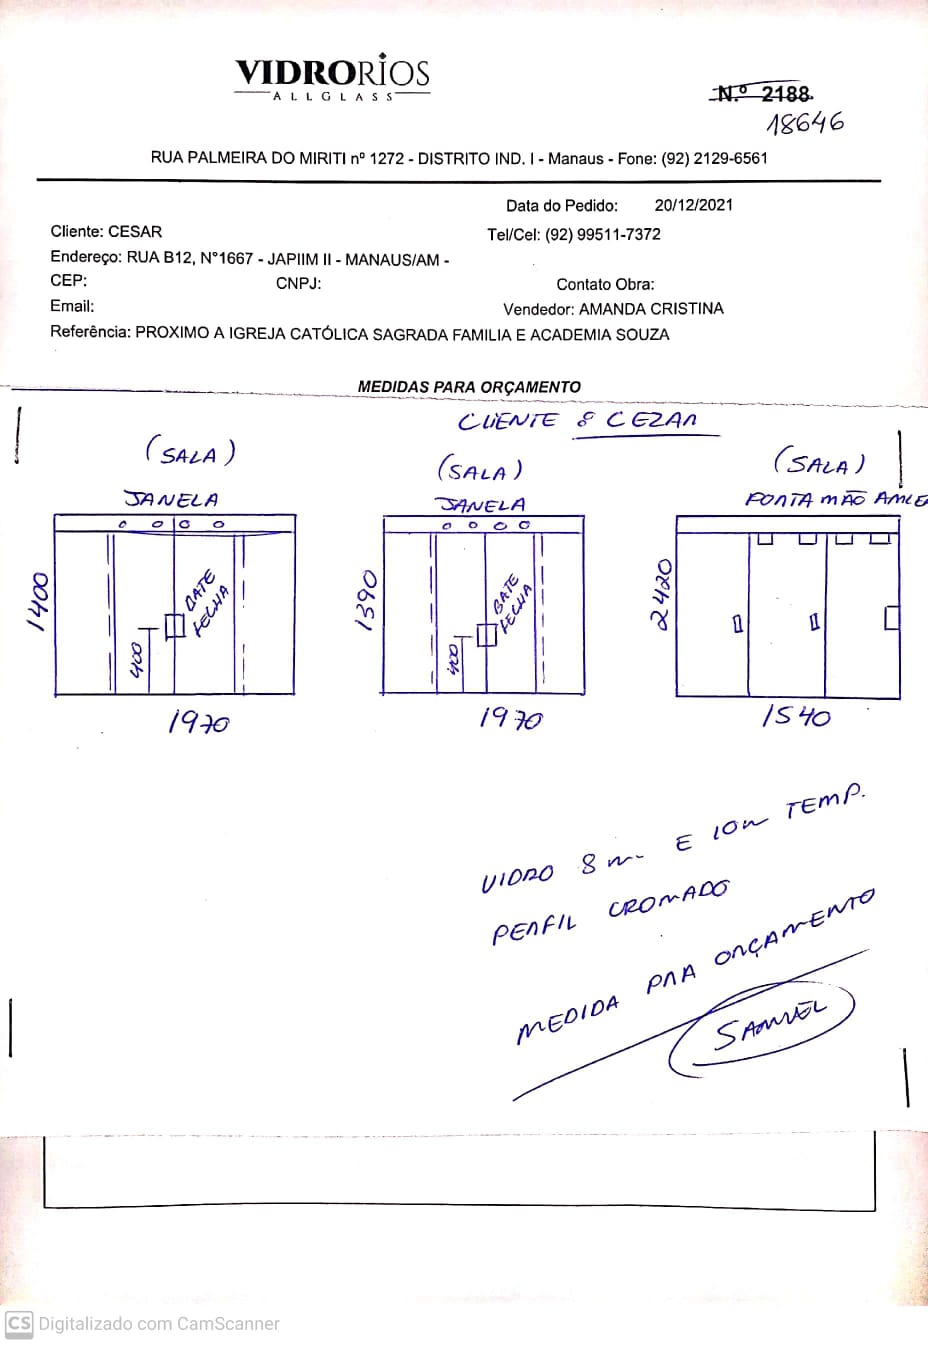 VIDRORIOS
ALLGLASS
N.º 2188
18646
RUA PALMEIRA DO MIRITI nº 1272 - DISTRITO IND. I - Manaus - Fone: (92) 2129-6561
Data do Pedido: 20/12/2021
Cliente: CESAR
Tel/Cel: (92) 99511-7372
Endereço: RUA B12, N°1667 - JAPIIM II - MANAUS/AM -
CEP: CNPJ: Contato Obra:
Email: Vendedor: AMANDA CRISTINA
Referência: PROXIMO A IGREJA CATÓLICA SAGRADA FAMILIA E ACADEMIA SOUZA
MEDIDAS PARA ORÇAMENTO
CLIENTE 8 CEZAR
(SALA)
JANELA
1400
BATE
FECHA
400
1970
(SALA)
JANELA
1390
BATE
FECHA
400
1970
(SALA)
PORTA MÃO AMIG
2420
1540
VIDRO 8m E 10m TEMP.
PERFIL CROMADO
MEDIDA PRA ORÇAMENTO
SAMUEL
CS Digitalizado com CamScanner